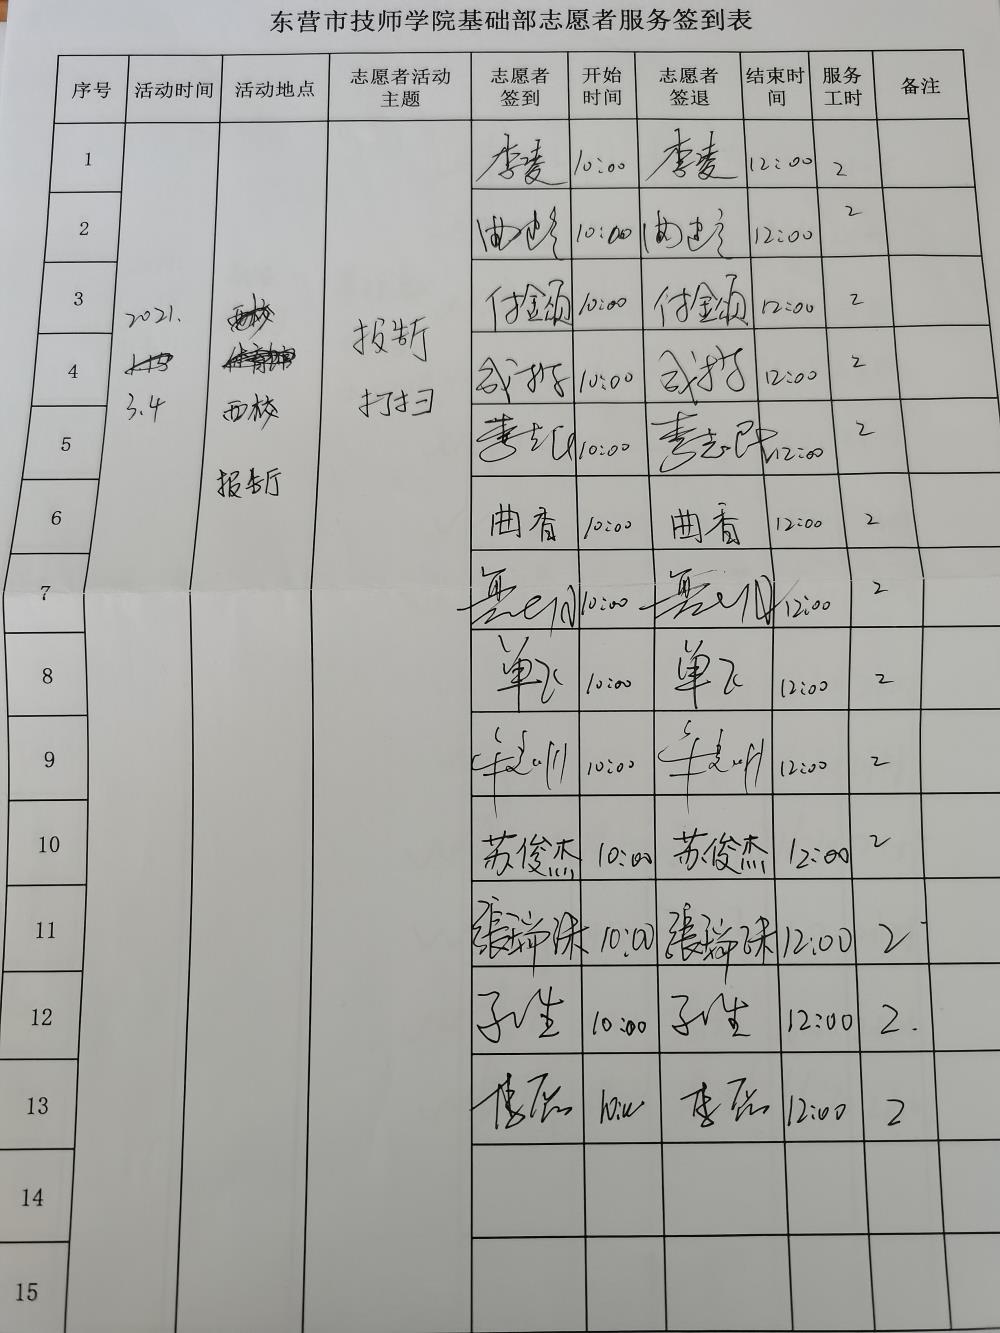 东营市技师学院基础部志愿者服务签到表
序号 活动时间 活动地点 志愿者活动主题 志愿者签到 开始时间 志愿者签退 结束时间 服务工时 备注
2021.
3.4
西校
报告厅
报告厅
打扫
1 李凌 10:00 李凌 12:00 2
2 10:00 12:00 2
3 付金颂 10:00 付金颂 12:00 2
4 10:00 12:00 2
5 10:00 12:00 2
6 曲香 10:00 曲香 12:00 2
7 10:00 12:00 2
8 单飞 10:00 单飞 12:00 2
9 10:00 12:00 2
10 苏俊杰 10:00 苏俊杰 12:00 2
11 10:00 12:00 2
12 10:00 12:00 2.
13 李磊 李磊 12:00 2
14
15